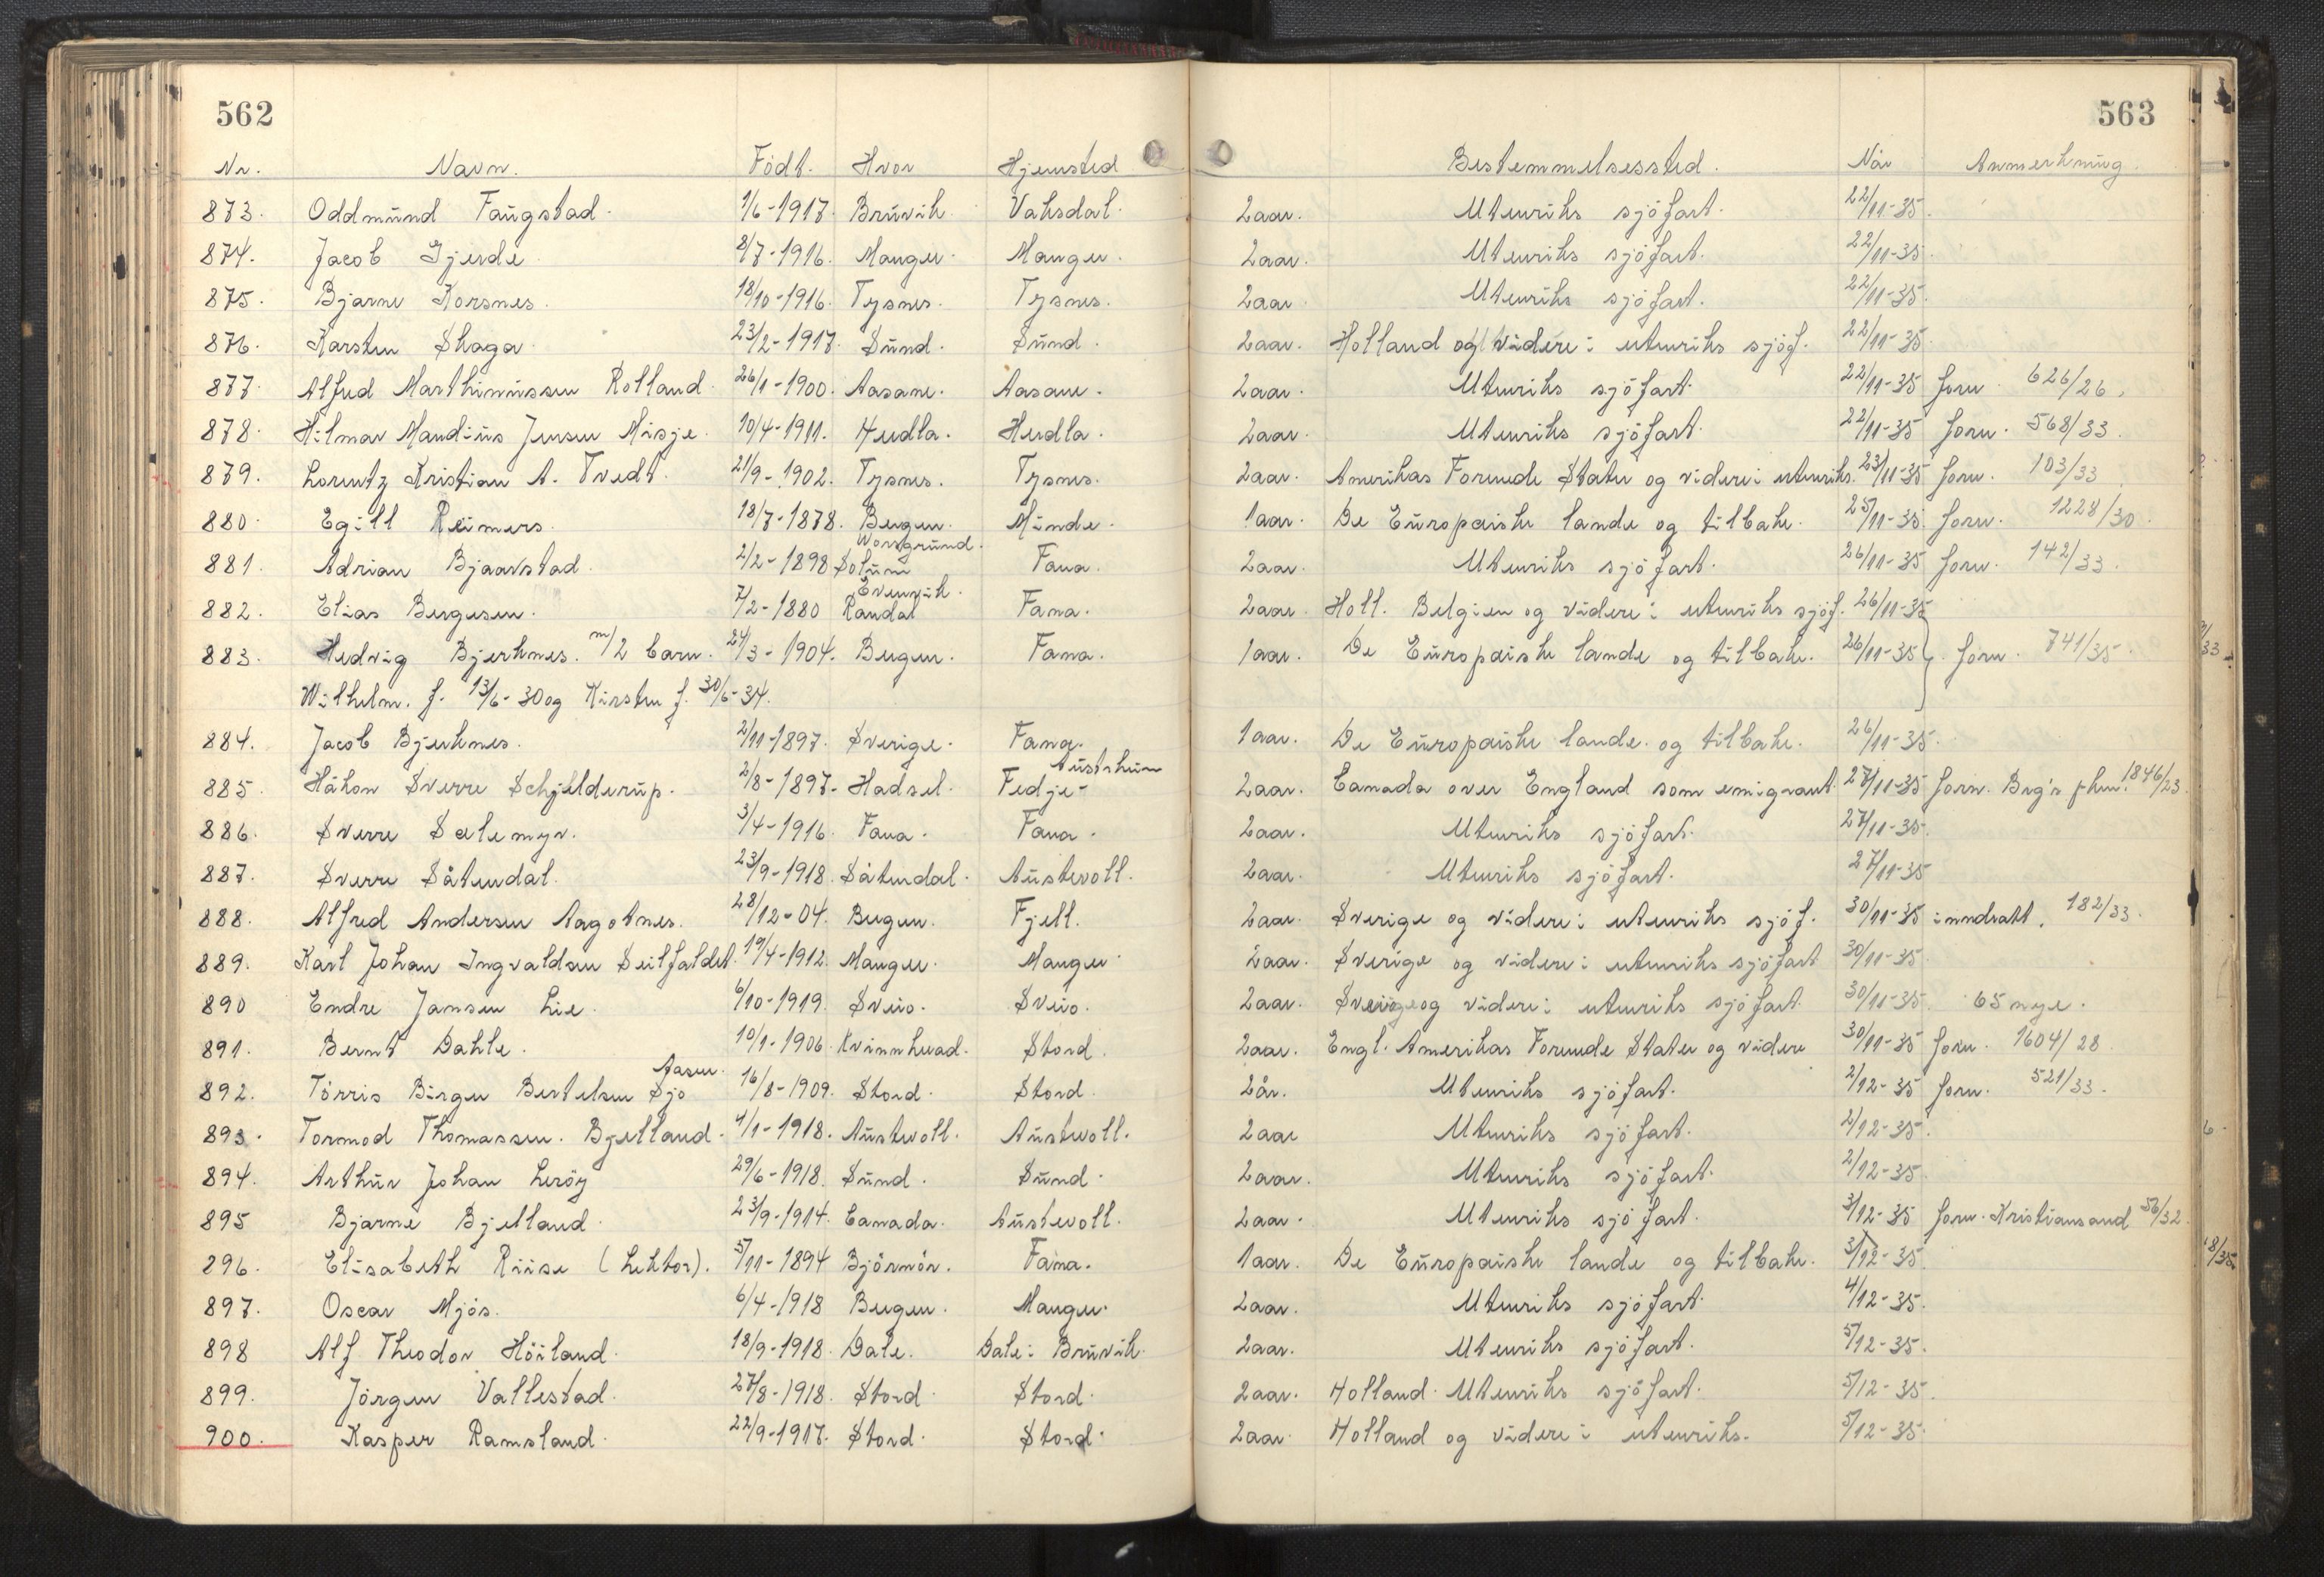 562
563
Nr. Navn. Födt. Hvor Hjemsted Bestemmelsessted. Når Anmerkning.
873. Oddmund Faugstad. 1/6-1917. Bruvik Vaksdal. 2 aar. Utenriks sjöfart. 22/11-35.
874. Jacob Gjerde 8/7-1916. Manger. Manger. 2 aar. Utenriks sjöfart. 22/11-35.
875. Bjarne Korsnes. 18/10-1916. Tysnes. Tysnes. 2 aar. Utenriks sjöfart. 22/11-35.
876. Karsten Skaga 23/2-1917. Sund. Sund. 2 aar. Holland og videre i utenriks sjöf. 22/11-35.
877. Alfred Marthinussen Rolland. 26/1-1900. Aasane. Aasane. 2 aar. Utenriks sjöfart. 22/11-35 forn. 626/26.
878. Hilmar Mandius Jensen Misje. 10/4-1911. Herdla. Herdla. 2 aar. Utenriks sjöfart. 22/11-35 forn. 568/33.
879. Lorentz Kristian A. Tvedt. 21/9-1902. Tysnes. Tysnes. 2 aar. Amerikas Forenede Stater og videre i utenriks. 23/11-35 forn. 103/33
880. Egill Reimers. 18/7-1878. Bergen. Minde. 1 aar. De Europæiske lande og tilbake. 25/11-35. forn. 1228/30.
881. Adrian Bjaavstad. 2/2-1898 Solum Porsgrund. Fana. 2 aar. Utenriks sjöfart. 26/11-35 forn. 142/33.
882. Elias Bergesen. 7/2-1880 Randal Evenvik. Fana. 2 aar. Holl. Belgien og videre i utenriks sjöf. 26/11-35
883. Hedvig Bjerknes. m/2 barn. 24/3-1904. Bergen. Fana. 1 aar. De Europæiske lande og tilbake. 26/11-35 forn. 741/35.
Wilhelm. f. 13/6-30 og Kirsten f. 30/6-34.
884. Jacob Bjerknes. 2/11-1897. Sverige. Fana. 1 aar. De Europæiske lande og tilbake. 26/11-35.
885. Håkon Sverre Schjelderup. 2/8-1897. Hadsel. Fedje- Austrheim 2 aar. Canada over England som emigrant. 27/11-35 forn. Brg's pkm. 1846/23.
886. Sverre Sælemyr. 3/4-1916. Fana. Fana. 2 aar. Utenriks sjöfart. 27/11-35.
887. Sverre Såtendal. 23/9-1918. Såtendal. Austevoll. 2 aar. Utenriks sjöfart. 27/11-35
888. Alfred Andersen Aagotnes. 28/12-04. Bergen. Fjell. 2 aar. Sverige og videre i utenriks sjöf. 30/11-35 inndratt. 182/33.
889. Karl Johan Ingvaldsen Seilfaldet. 19/4-1912. Manger. Manger. 2 aar. Sverige og videre i utenriks sjöfart 30/11-35.
890 Endre Jansen Lie. 6/10-1919. Sveio. Sveio. 2 aar. Sverige og videre i utenriks sjöfart. 30/11-35. 65 nye.
891. Bernt Dahle. 10/1-1906. Kvinnherad. Stord. 2 aar. Engl. Amerikas Forenede Stater og videre 30/11-35 forn. 1604/28
892. Törris Birger Bertelsen Sjo Aasen. 16/8-1909. Stord. Stord. 2 år. Utenriks sjöfart. 2/12-35 forn. 521/33.
893. Tormod Thomassen. Bjelland. 4/1-1918. Austevoll. Austevoll. 2 aar Utenriks sjöfart. 2/12-35.
894. Arthur Johan Leröy 29/6-1918. Sund. Sund. 2 aar. Utenriks sjöfart. 2/12-35.
895 Bjarne Bjelland. 23/9-1914. Canada. Austevoll. 2 aar. Utenriks sjöfart. 3/12-35 forn. Kristiansand 56/32.
296. Elisabeth Riise (Lektor). 5/11-1894 Björnör. Fana. 1 aar. De Europæiske lande og tilbake. 3/12-35.
897. Oscar Mjös. 6/4-1918 Bergen. Manger. 2 aar. Utenriks sjöfart. 4/12-35.
898 Alf Theodor Höiland. 18/9-1918. Dale. Dale i Bruvik. 2 aar. Utenriks sjöfart. 5/12-35.
899. Jörgen Vallestad. 27/8-1918. Stord. Stord. 2 aar. Holland. Utenriks sjöfart. 5/12-35.
900. Kasper Ramsland. 22/9-1917. Stord. Stord. 2 aar. Holland og videre i utenriks. 5/12-35.